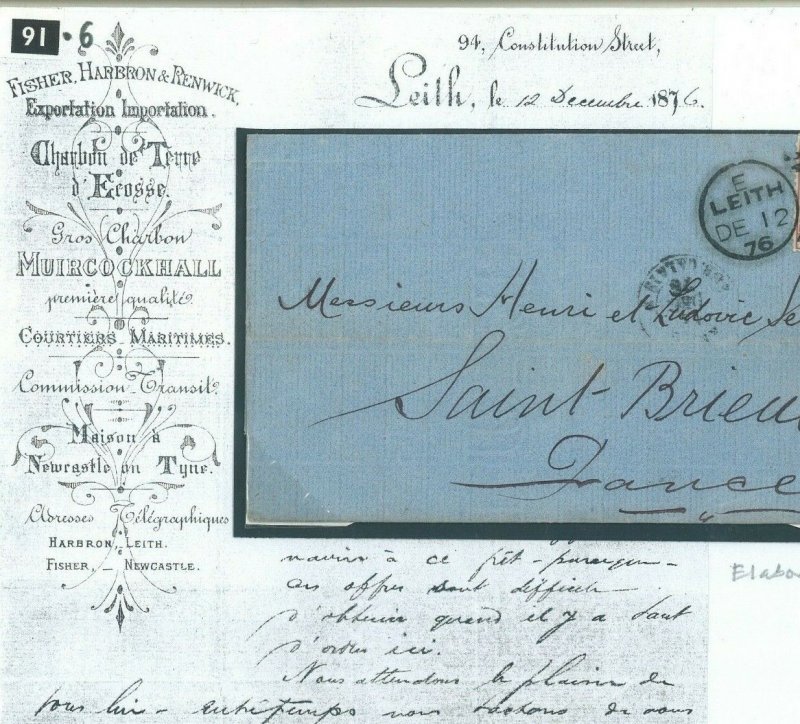 91 .6
94, Constitution Street,
Leith, le 12 Decembre 1876.
FISHER, HARBRON & RENWICK,
Exportation Importation.
Charbon de Terre
d'Ecosse.
Gros Charbon
MUIRCOCKHALL
première qualité.
COURTIERS MARITIMES.
Commission Transit.
Maison à
Newcastle on Tyne.
Adresses Télégraphiques
HARBRON, LEITH.
FISHER, — NEWCASTLE.
E
LEITH
DE 12
76
Messieurs Henri et Ludovic Se
Saint-Brieu
France
Elabo
navire à ce frêt - parceque
ces offres sont difficile
d'obtenir quand il y a tant
d'ordres ici.
Nous attendons le plaisir de
vous lire - entretemps nous de nous